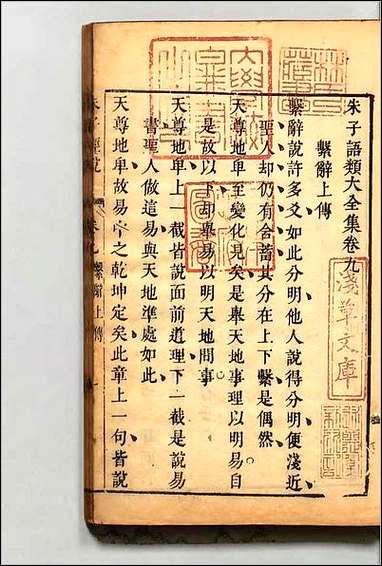 朱子語類大全集卷九
繫辭上傳
繫辭說許多爻如此分明他人說得分明便淺近
聖人却仍有含蓄其分在上下繫是偶然
天尊地卑至變化見矣是舉天地事理以明易自
是故以下却舉易以明天地間事
天尊地卑上一截皆說面前道理下一截是說易
書聖人做這易與天地準處如此
天尊地卑故易中之乾坤定矣此章上一句皆說
淺草文庫
林氏藏書
卷九 繫辭上傳 一